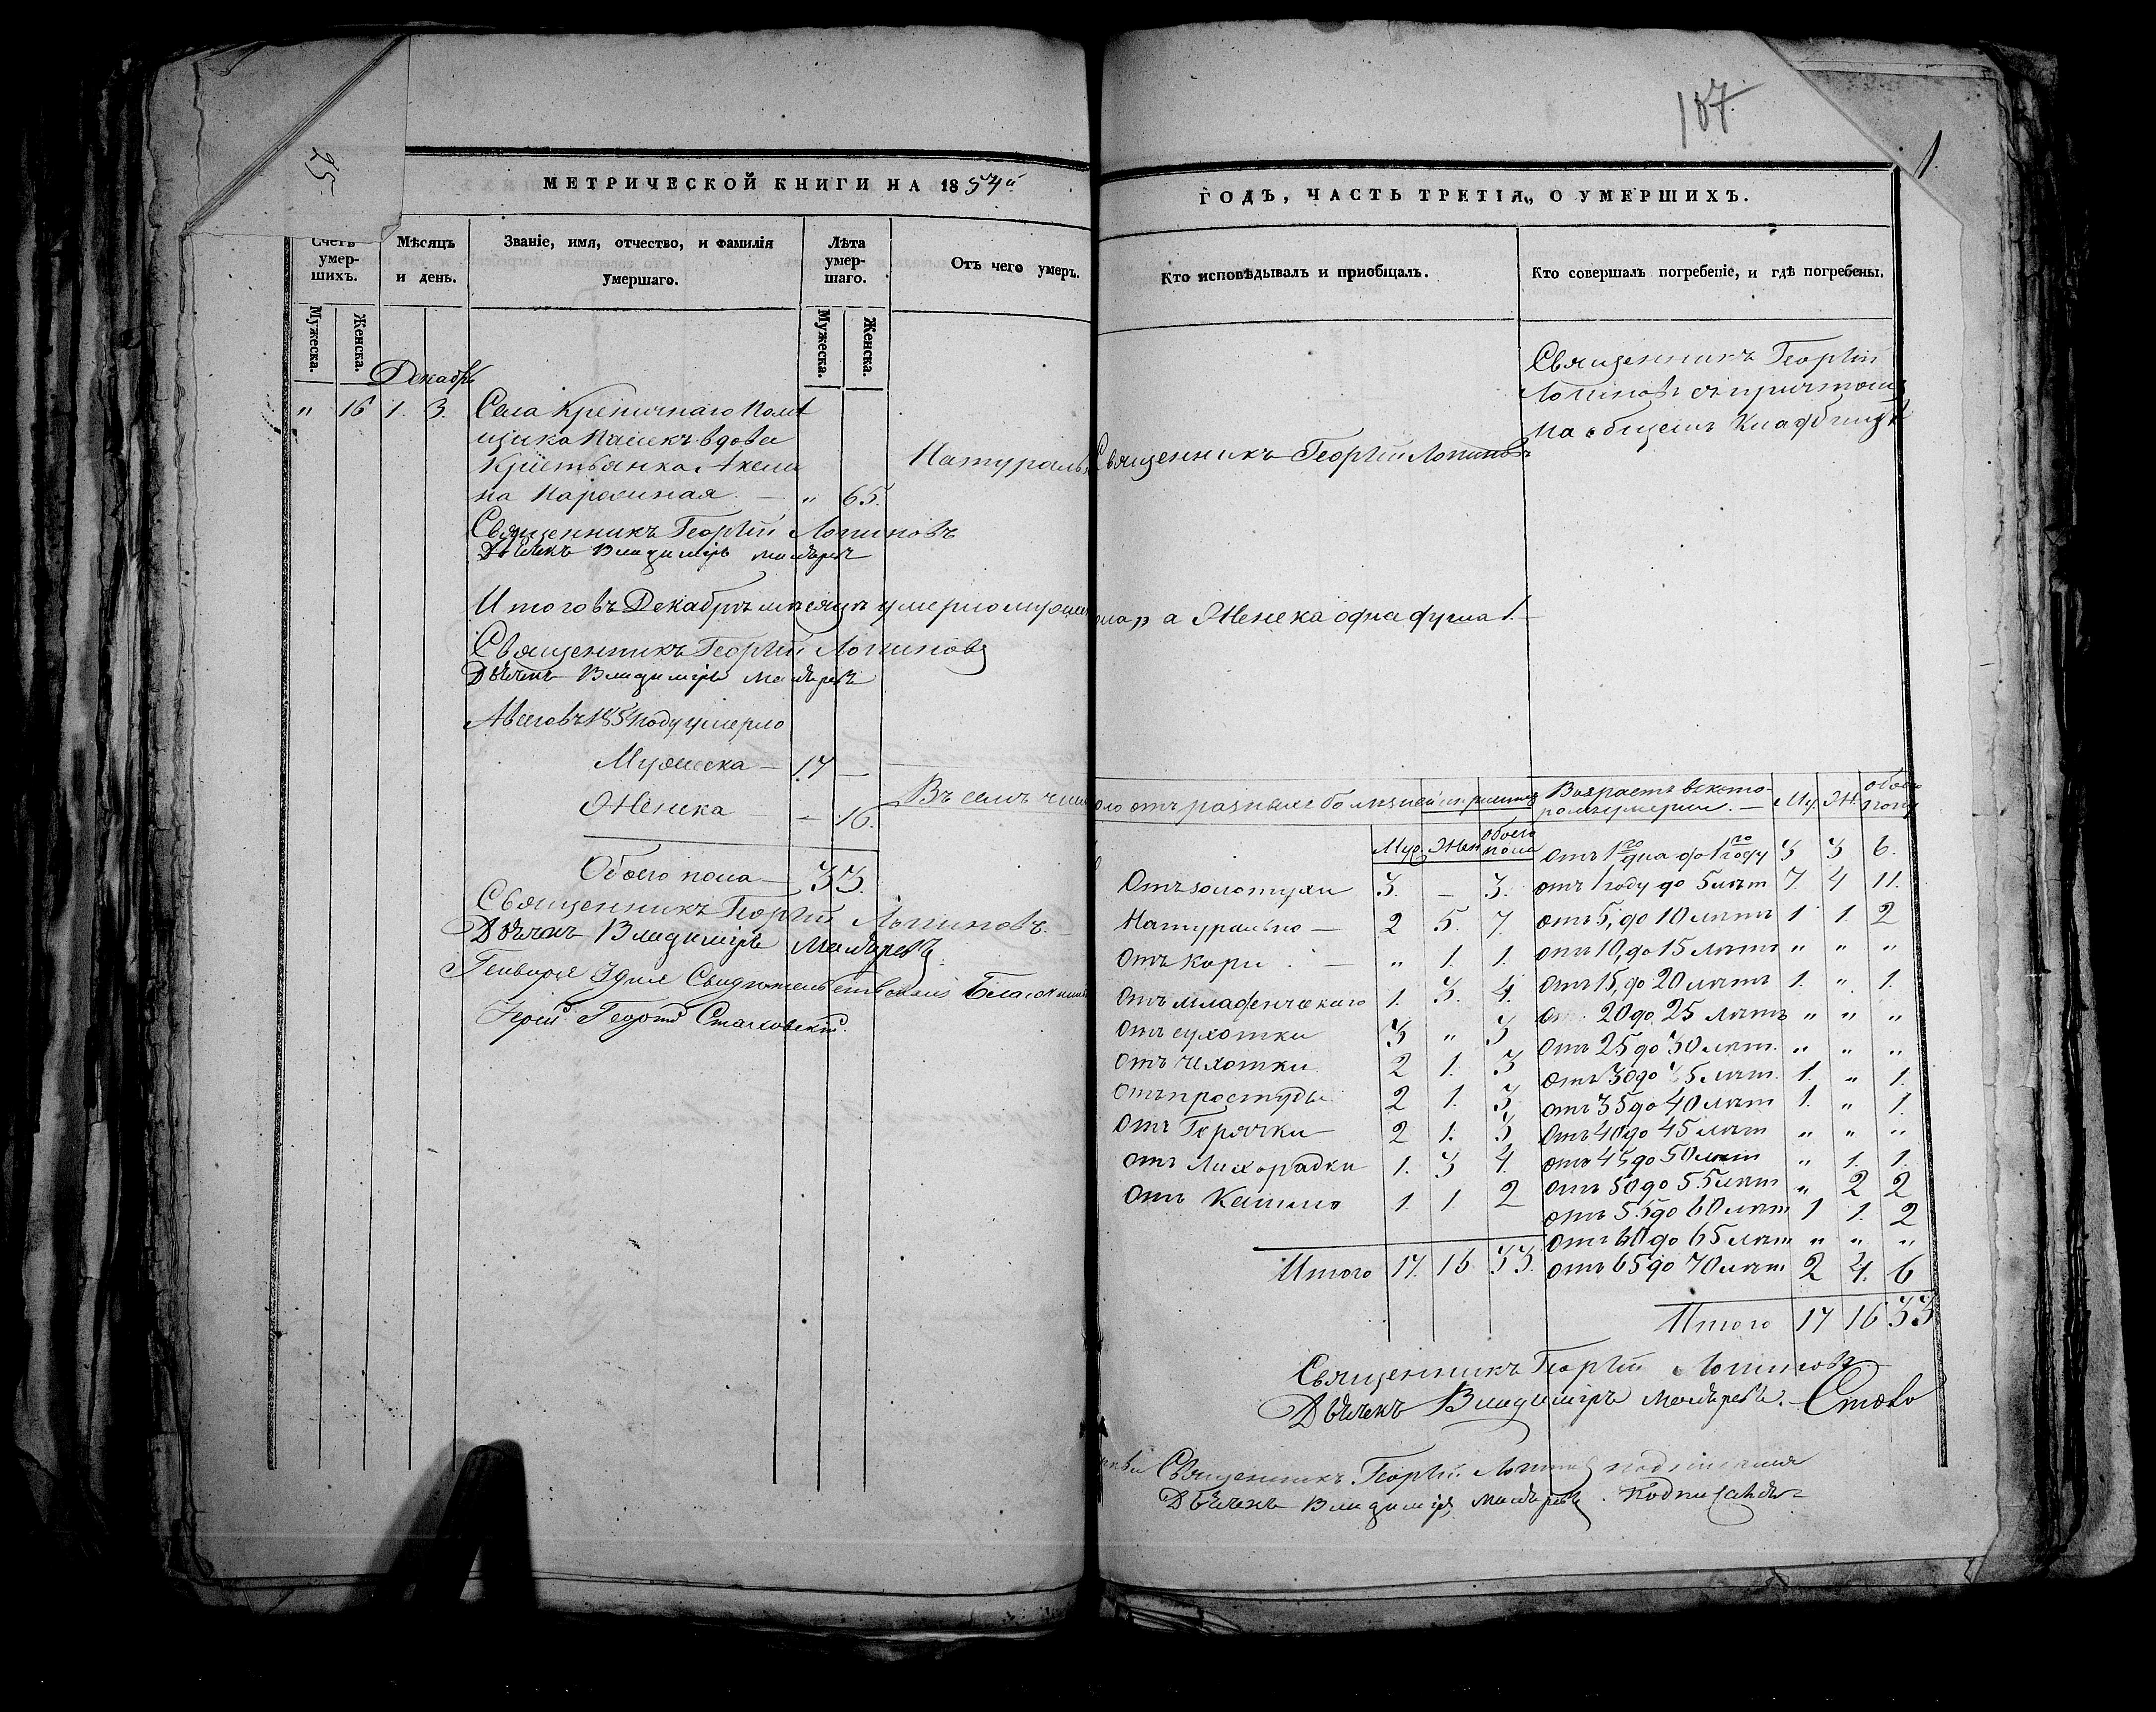 107
1.
25.
МЕТРИЧЕСКОЙ КНИГИ НА 1854й
ГОДЪ, ЧАСТЬ ТРЕТІЯ, О УМЕРШИХЪ.
Счетъ умер-
шихъ.
Мужеска.
Женска.
Мѣсяцъ
и день.
Званіе, имя, отчество, и фамилія
умершаго.
Лѣта
умер-
шаго.
Мужеска.
Женска.
Отъ чего умеръ.
Кто исповѣдывалъ и пріобщалъ.
Кто совершалъ погребеніе, и гдѣ погребены.
Декабрь
" 16 1. 3. Села Крепичнаго Помѣ
щика вдова
Крестьянка Акели
на — " 65.
Натураль
Священникъ Георгій Лопиновъ
Священникъ Георгій
Лопиновъ съ причтомъ
на общемъ Кладбищѣ
Священникъ Георгій Лопиновъ
Дьячекъ Владиміръ
Итого въ Декабрѣ мѣсяцѣ умерло мужеска а Женска одна душа 1. —
Священникъ Георгій Лопиновъ
Дьячекъ Владиміръ
А всего въ 1854 году умерло
Мужеска — 17 —
Женска — 16.
Обоего пола — 33.
Священникъ Георгій Лопиновъ. —
Дьячекъ Владиміръ
Генваря 3 дня Свидѣтельствовалъ Благочинный
Іерей Георгій
Въ семъ числѣ отъ разныхъ болѣзней
Муж. Жен. Обоего пола
Отъ золотухи 3. — 3.
Натурально — 2 5. 7.
Отъ Кори . — " 1. 1.
Отъ младенческаго 1. 3. 4.
Отъ сухотки 3 " 3
Отъ чахотки 2 1. 3
Отъ простуды 2 1. 3
Отъ Горячки 2 1. 3
Отъ Лихорадки 1. 3 4.
Отъ Кашлю 1. 1 2
Итого 17. 16 33.
Возрастъ въ кото-
ромъ умерли. — Му. Ж. обоего полу
Отъ 1го дна до 1го году 3 3 6.
отъ 1 году до 5 лѣтъ 7. 4 11.
отъ 5, до 10 лѣтъ 1 1. 2
отъ 10, до 15 лѣтъ " " "
Отъ 15, до 20 лѣтъ 1. " 1.
От 20 до 25 лѣтъ " " "
Отъ 25 до 30 лѣтъ. " " "
Отъ 30 до 35 лѣтъ. 1. " 1.
отъ 35 до 40 лѣтъ 1. " 1.
Отъ 40 до 45 лѣтъ " " "
отъ 45 до 50 лѣтъ " 1. 1.
отъ 50 до 55 лѣтъ " 2 2
отъ 55 до 60 лѣтъ 1 1. 2
отъ 60 до 65 лѣтъ " " "
отъ 65 до 70 лѣтъ 2 4. 6
Итого 17 16 33
Священникъ Георгій Лопиновъ
Дьячекъ Владиміръ
Священникъ Георгій Лопиновъ
Дьячекъ Владиміръ